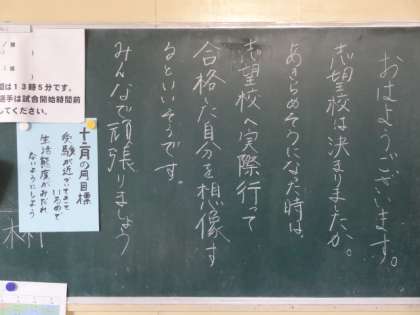 おはようございます。
志望校は決まりましたか。
あきらめそうになった時は、
志望校へ実際行って
合格した自分を想像す
るといいそうです。
みんなで頑張りましょう
十二月の月目標
受験が近づいてきて
いるので
生活態度がみだれ
ないようにしよう
間は13時5分です。
選手は試合開始時間前
してください。